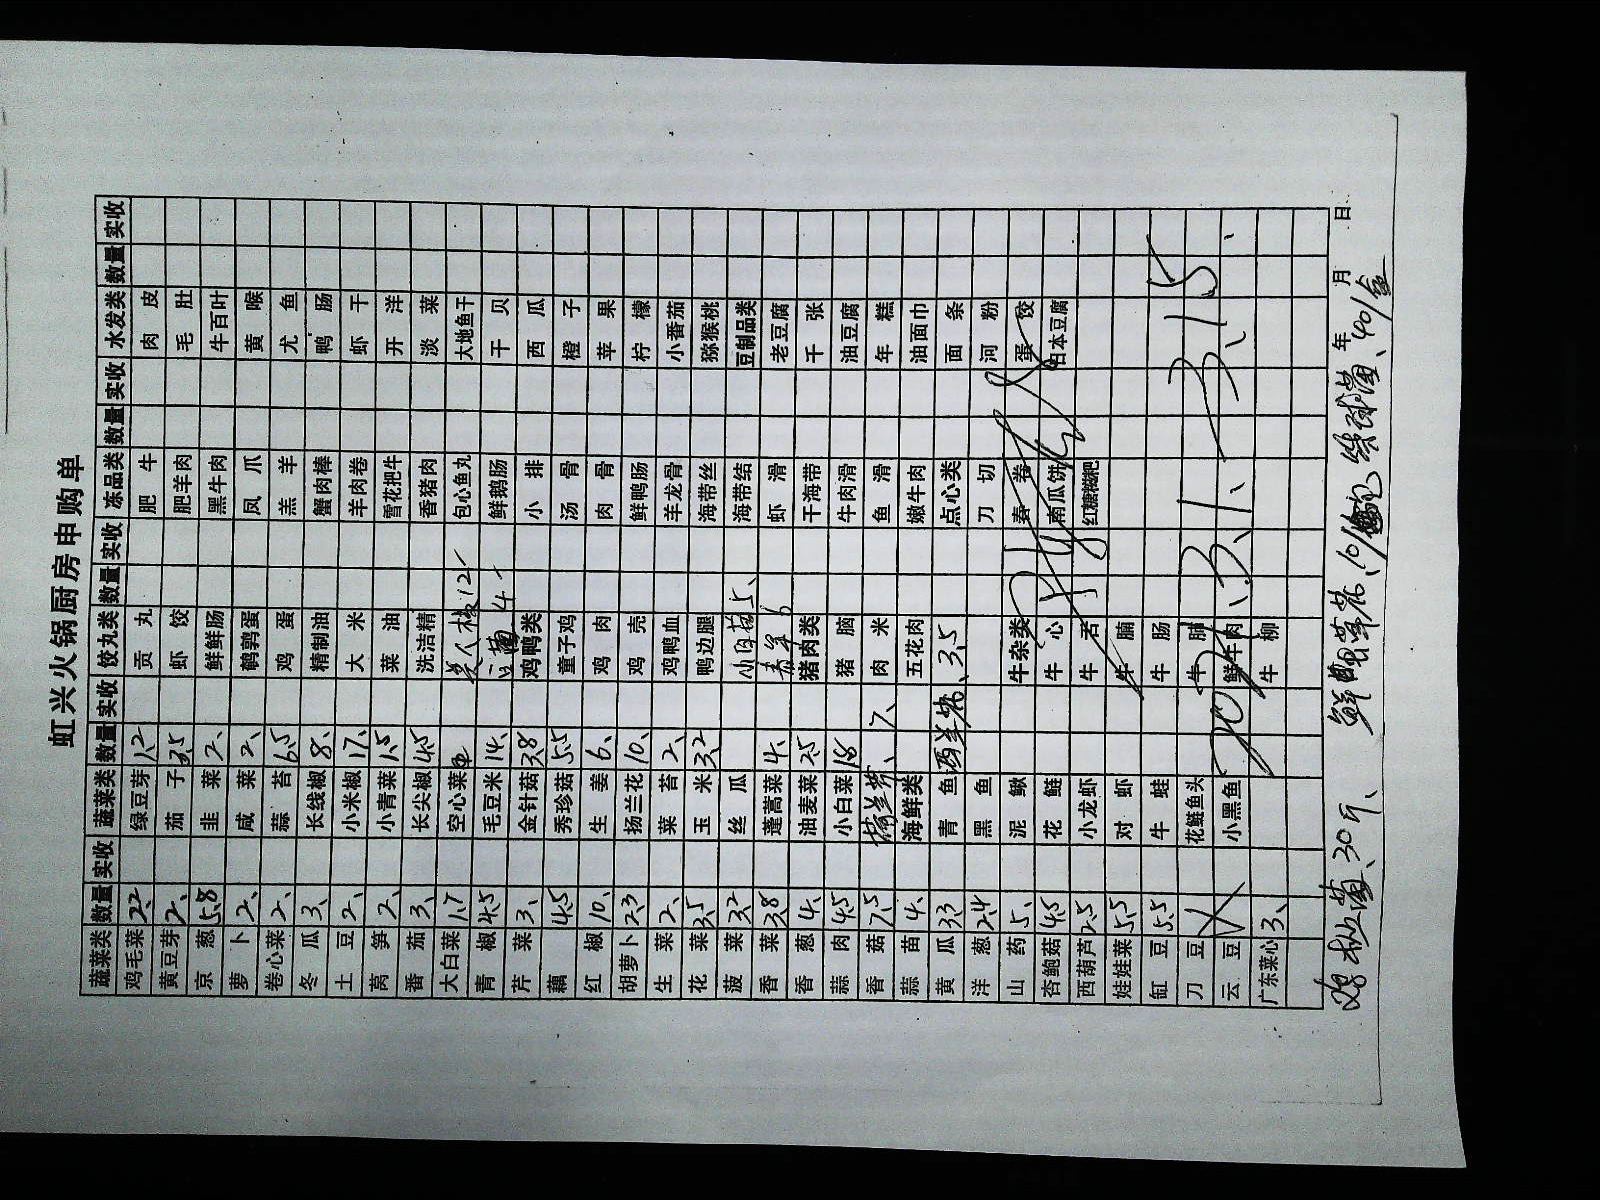 虹兴火锅厨房申购单
蔬菜类 数量 实收 蔬菜类 数量 实收 饺丸类 数量 实收 冻品类 数量 实收 水发类 数量 实收
鸡毛菜 2.2 绿豆芽 1.2 贡丸 肥牛 肉皮
黄豆芽 2、 茄子 3.5 虾饺 肥羊肉 毛肚
京葱 5.8 韭菜 2、 鲜鲜肠 黑牛肉 牛百叶
萝卜 2、 咸菜 2、 鹌鹑蛋 凤爪 黄喉
卷心菜 2、 蒜苔 6.5 鸡蛋 羔羊 尤鱼
冬瓜 3、 长线椒 8、 精制油 蟹肉棒 鸭肠
土豆 2、 小米椒 17、 大米 羊肉卷 虾干
莴笋 2、 小青菜 1.5 菜油 雪花把牛 开洋
番茄 3、 长尖椒 4.5 洗洁精 香猪肉 淡菜
大白菜 1.7 空心菜 包心鱼丸 大地鱼干
青椒 4.5 毛豆米 14、 4 鲜鹅肠 干贝
芹菜 3、 金针菇 3.8 鸡鸭类 小排 西瓜
藕 4.5 秀珍菇 5.5 童子鸡 汤骨 橙子
红椒 10、 生姜 6、 鸡肉 肉骨 苹果
胡萝卜 2.3 扬兰花 10、 鸡壳 鲜鸭肠 柠檬
生菜 2、 菜苔 2、 鸡鸭血 羊龙骨 小番茄
花菜 3.5 玉米 3.2 鸭边腿 海带丝 猕猴桃
菠菜 3.2 丝瓜 5、 海带结 豆制品类
香菜 3.8 蓬蒿菜 4、 6 虾滑 老豆腐
香葱 4、 油麦菜 2.5 猪肉类 干海带 千张
蒜肉 4.5 小白菜 1.8 猪脑 牛肉滑 油豆腐
香菇 7.5 7、 肉米 鱼滑 年糕
蒜苗 4、 海鲜类 五花肉 嫩牛肉 油面巾
黄瓜 3.3 青鱼 西兰花、3.5 点心类 面条
洋葱 2.4 黑鱼 刀切 河粉
山药 5、 泥鳅 牛杂类 春卷 蛋饺
杏鲍菇 4.5 花鲢 牛心 南瓜饼 日本豆腐
西葫芦 2.5 小龙虾 牛君 红糖糍粑
娃娃菜 5.5 对虾 牛腩
缸豆 5.5 牛蛙 牛肠
刀豆 花鲢鱼头 牛脯
云豆 小黑鱼 鲜牛肉
广东菜心 3、 牛柳
年 月 日
30元、 40/盒